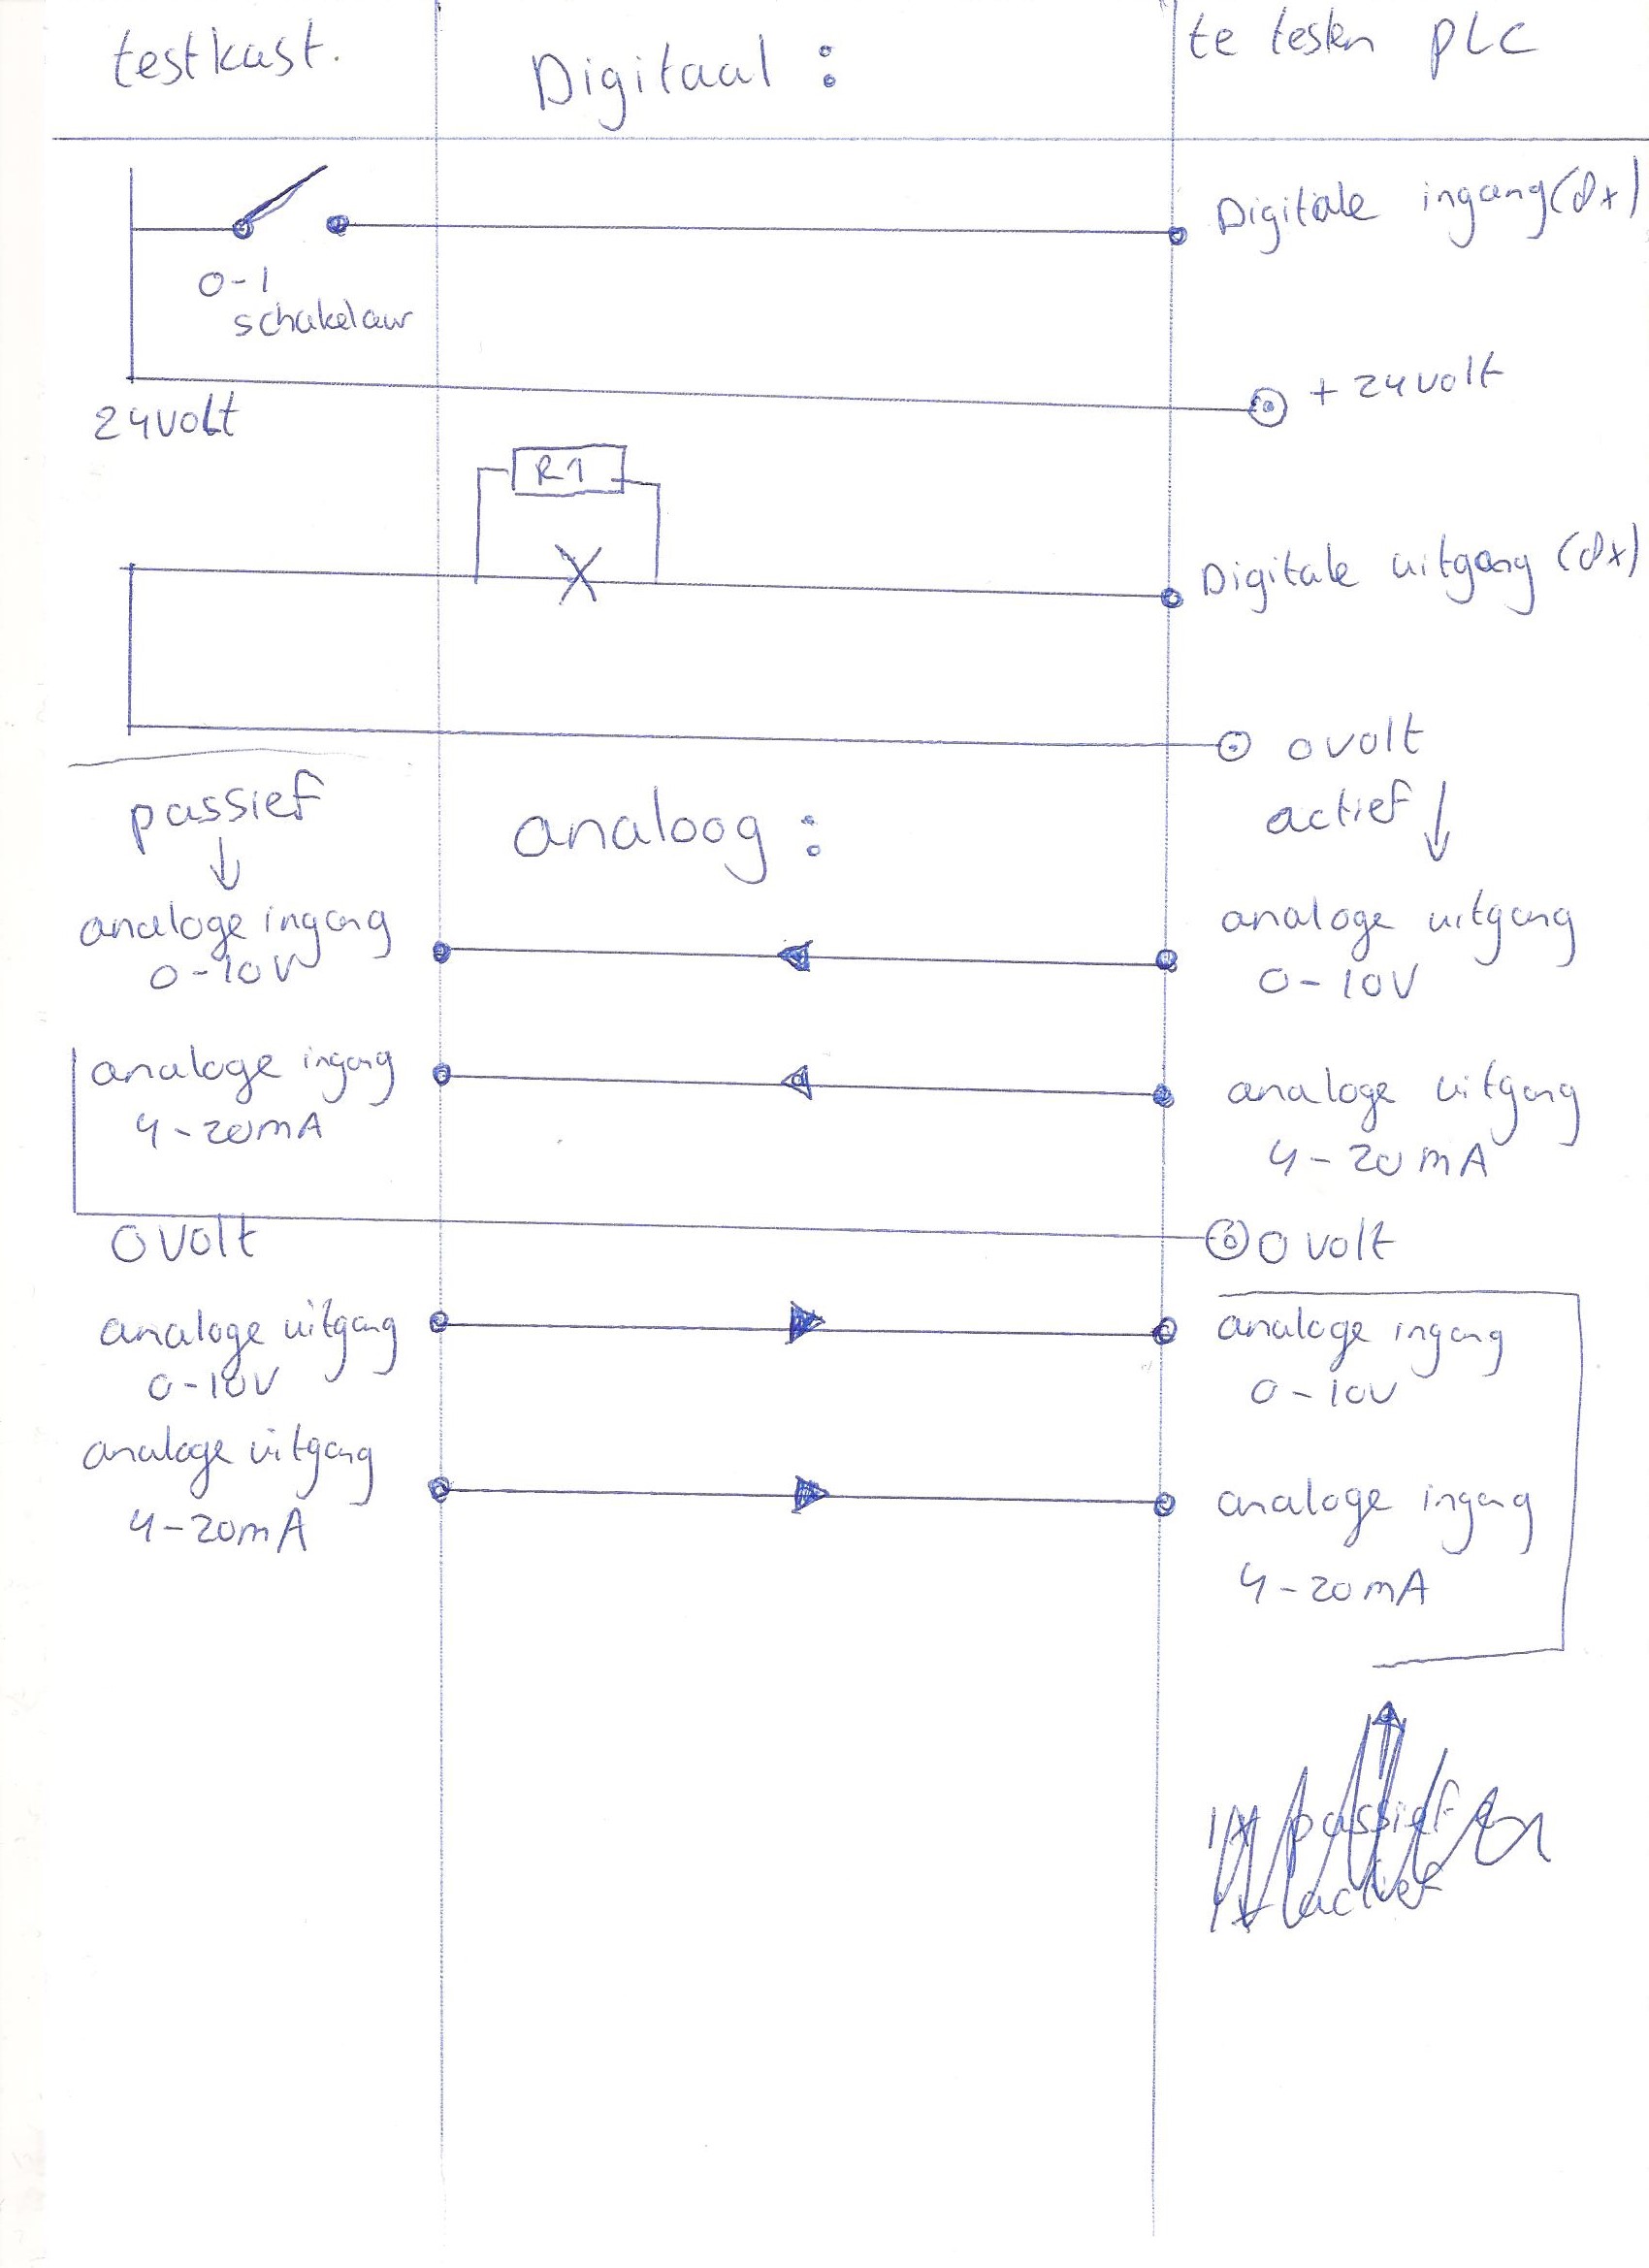 testkast.
Digitaal :
te testen PLC
Digitale ingang (8x)
0-1
schakelaar
24volt
+ 24volt
R1
Digitale uitgang (8x)
0 volt
passief
analoog :
actief
analoge ingang
0-10V
analoge uitgang
0-10V
analoge ingang
4-20mA
analoge uitgang
4-20mA
0 volt
0 volt
analoge uitgang
0-10V
analoge ingang
0-10V
analoge uitgang
4-20mA
analoge ingang
4-20mA
1x passief
actief